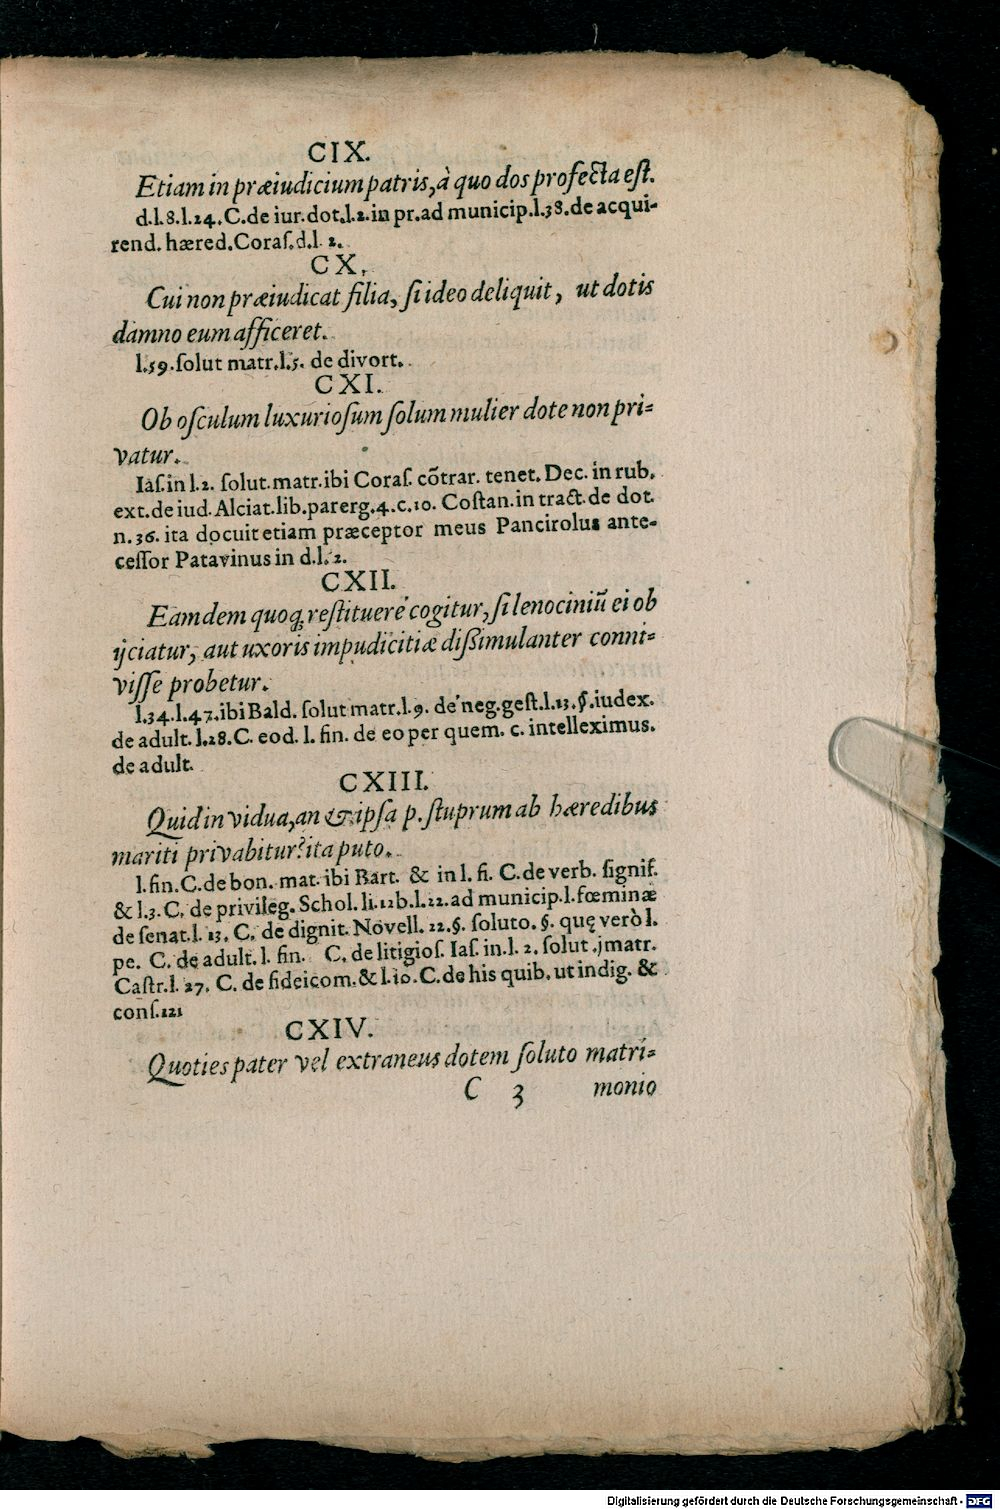 CIX.
Etiam in præiudicium patris, à quo dos profecta eſt.
d.l.8.l.24.C.de iur.dot.l.2.in pr.ad municip.l.38.de acqui-
rend. hæred.Coraſ.d.l. 2.
CX.
Cui non præiudicat filia, ſi ideo deliquit, ut dotis
damno eum afficeret.
l.59.ſolut matr.l.5. de divort.
CXI.
Ob oſculum luxurioſum ſolum mulier dote non pri=
vatur.
Iaſ.in l.2. ſolut.matr.ibi Coraſ. cõtrar. tenet. Dec. in rub.
ext.de iud.Alciat.lib.parerg.4.c.10. Coſtan.in tract.de dot.
n.36. ita docuit etiam præceptor meus Pancirolus ante-
ceſſor Patavinus in d.l.2.
CXII.
Eamdem quoq; reſtituere cogitur, ſi lenociniũ ei ob
ijciatur, aut uxoris impudicitiæ dißimulanter conni=
viſſe probetur.
l.34.l.47.ibi Bald. ſolut matr.l.9. de neg.geſt.l.13.§.iudex.
de adult. l.28.C. eod. l. fin. de eo per quem. c. intelleximus.
de adult.
CXIII.
Quid in vidua, an & ipſa p. ſtuprum ab hæredibus
mariti privabitur? ita puto.
l.fin.C.de bon. mat.ibi Bart. & in l. fi. C.de verb. ſignif.
& l.3.C. de privileg.Schol.li.12b.l.22.ad municip.l.fœminæ
de ſenat.l. 13. C. de dignit.Novell. 22.§. ſoluto.§. quę verò l.
pe. C. de adult. l. fin. C. de litigioſ. Iaſ. in.l. 2. ſolut .jmatr.
Caſtr.l. 27. C. de fideicom.& l.10.C.de his quib.ut indig. &
conſ.121
CXIV.
Quoties pater vel extraneus dotem ſoluto matri=
C 3 monio
Digitalisierung gefördert durch die Deutsche Forschungsgemeinschaft - DFG